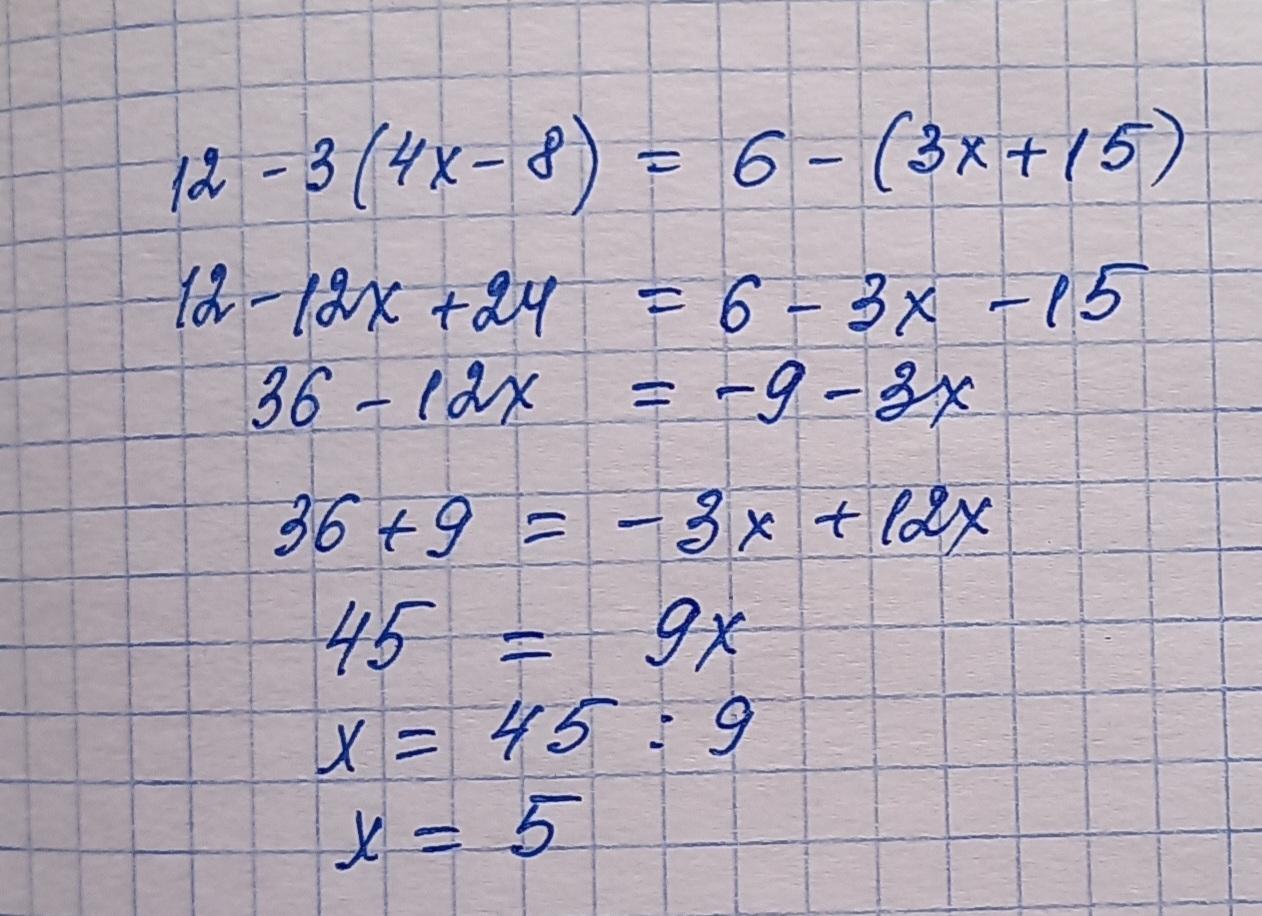 12 - 3(4x - 8) = 6 - (3x + 15)
12 - 12x + 24 = 6 - 3x - 15
36 - 12x = -9 - 3x
36 + 9 = -3x + 12x
45 = 9x
x = 45 : 9
x = 5